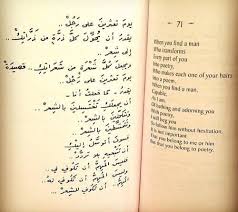 يومَ تعثرينَ على رَجُلْ ..
يقدرُ أن يُحوِّلَ كلَّ ذرَّةٍ من ذَرَّاتِكِ ..
إلى شِعْرْ ..
ويجعلَ كلَّ شَعْرَةٍ من شَعَراتِكِ .. قصيدةْ ..
يقدرُ - كما فعلتُ أنا -
أن يجعلَكِ تغتسلينَ بالشِعْرْ ..
بالشِعْرْ ..
بالشِعْرْ ..
أن تتبعيهِ بلا تردُّدْ ..
فليسَ المهمُّ أن تكوني لي ..
أن تكوني
المهمُّ أن تكوني للشِعْرْ ..
71
When you find a man
Who transforms
Every part of you
Into poetry,
Who makes each one of your hairs
Into a poem,
When you find a man,
Capable,
As I am
Of bathing and adorning you
With poetry,
I will beg you
To follow him without hesitation.
It is not important
That you belong to me or him
But that you belong to poetry.